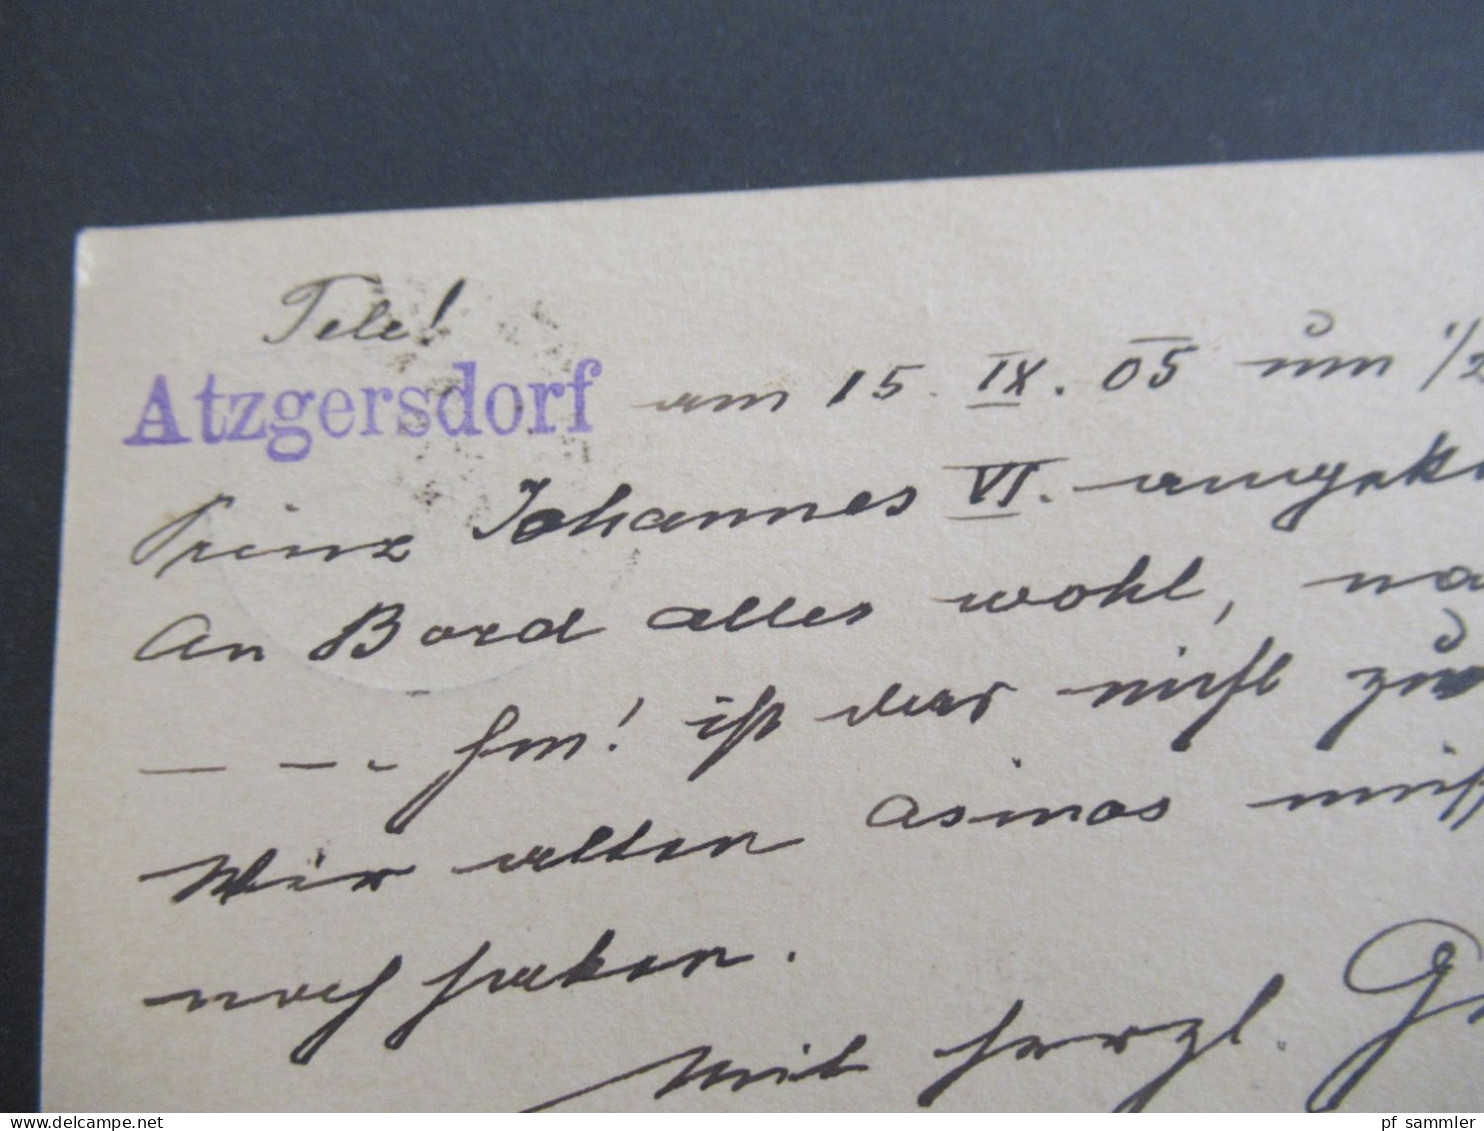 Tele!
Atzgersdorf am 15. IX. 05 um 1/2
Prinz Johannes VI. angek
An Bord alles wohl, na
— — -. hm! ist das nicht zu
Wir alten Asinos
noch
Mit herzl. G
delcampe.net
pf_sammler